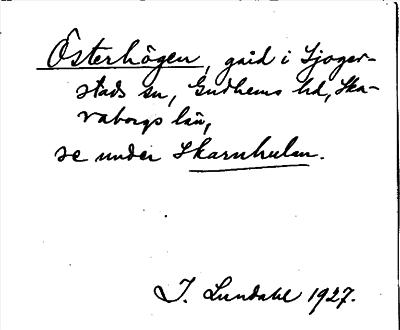 Österhögen, gård i Sjoger-
stads sn, Gudhems hd, Ska-
raborgs län,
se under Skarnhulan.
J. Lundahl 1927.